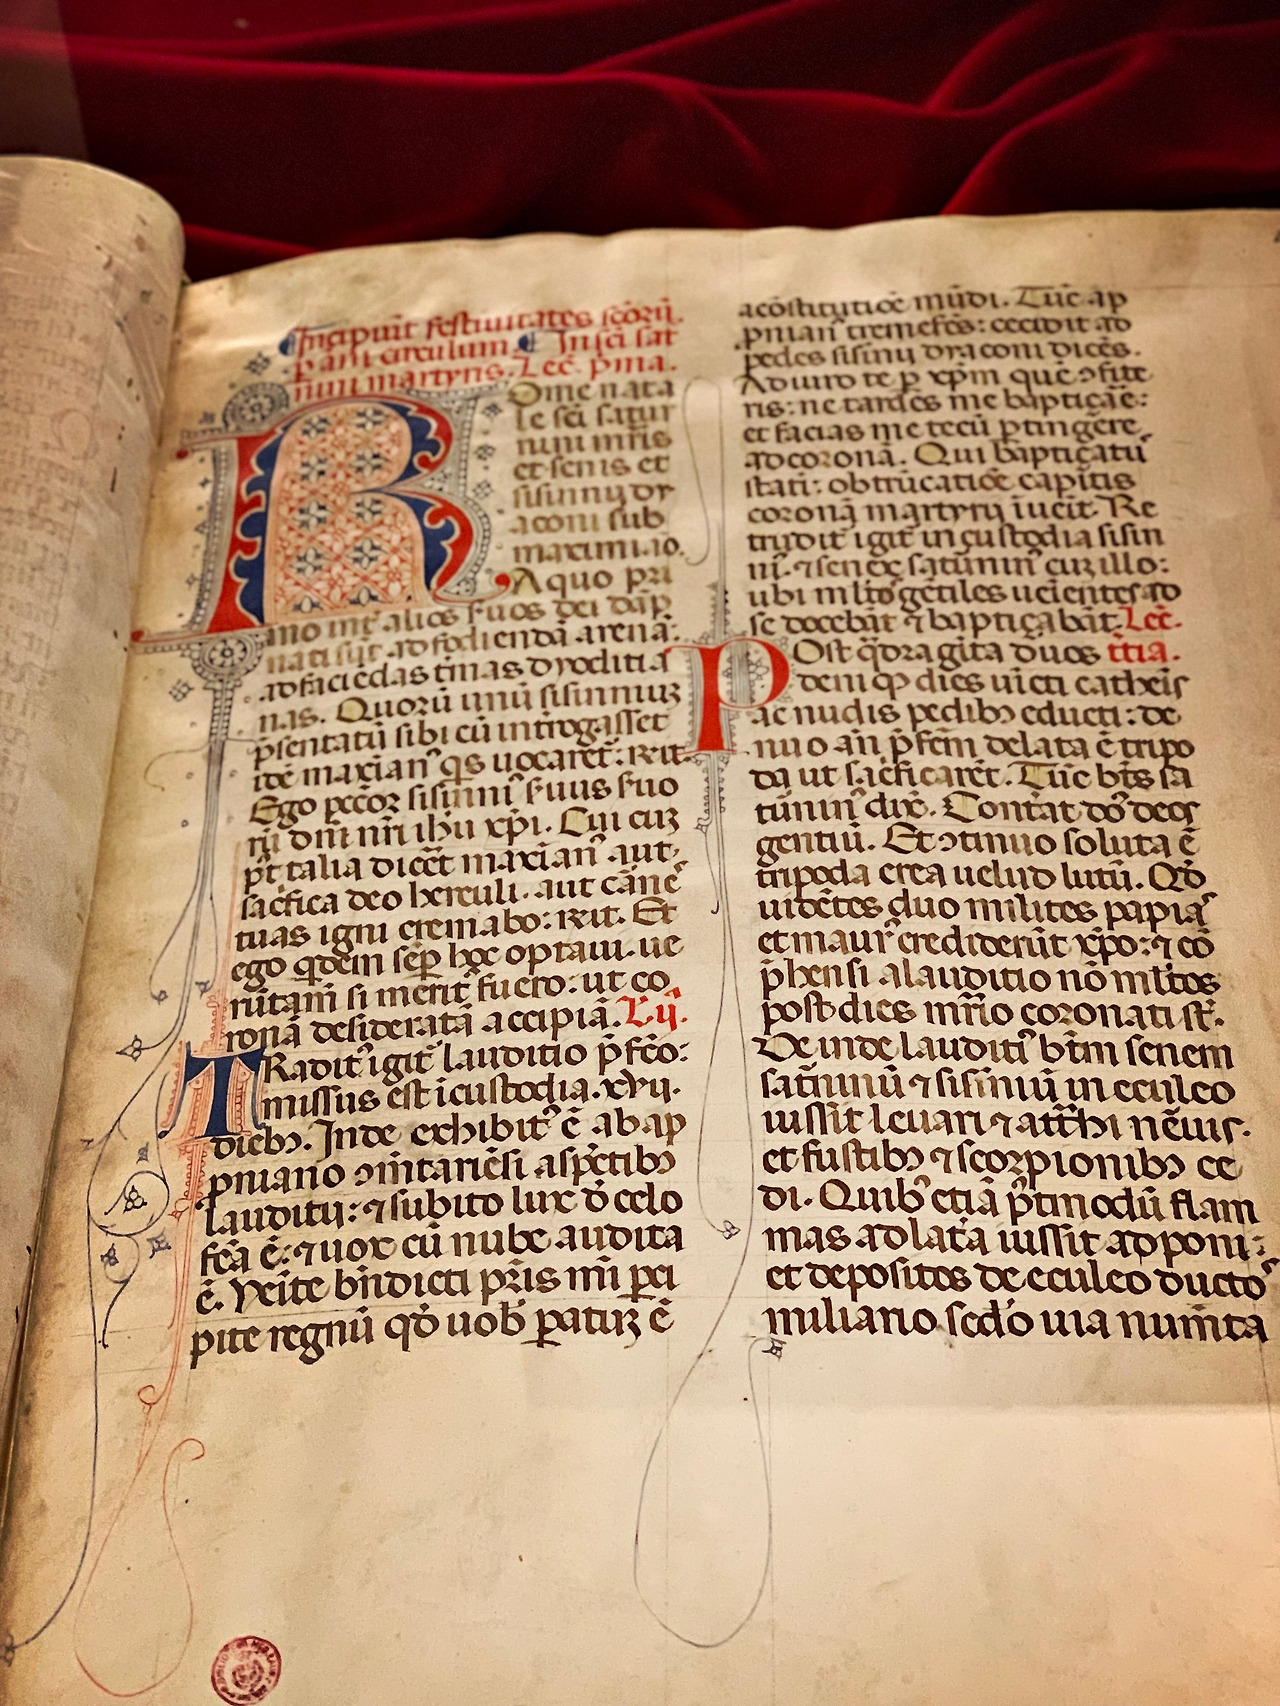 Incipiut festiuitates scōrū.
p ani circulum. In sci sat
nini martyris. Lec̄. p̄ma.
Rome nata
le sci̅ satur
nini mr̄is
et senis et
sisinnij dy
aconi sub
maximiāo.
A quo pri
mo int̄ alios s̄uos dei dāp
nati sūt ad fodiendā arenā:
ad faciēdas t̄mas dyoclitia
nas. Quorū unū sisinniuȝ
p̄sentatū sibi cū int̄rogasset
idē maxian᾽ q̄s uocaret᷑: R̄it.
Ego pcc̄oꝛ sisinni᾽ s̄uus s̄uo
rū dn̄i nr̄i ih̄u xp̄i. Cui cuȝ
pt̄ talia dicēt maxian᾽ aut
sac̄fica deo herculi. aut carē
tuas igni cremabo: R̄it. Et
ego qͥdem sēp hoc optaui. ue
rūtam̄ si merit᾽ fuero: ut co
ronā desideratā accipiā. L. ij.
TRadit᾽ igit᷑ lauditio p̄fc̄o:
missus est i custodia. xvij.
dieb᾽. Inde exhibit᾽ ē ab ap
pniano ꝯmitariēsi asp̄ctib᾽
lauditij: ⁊ subito lux d̄ celo
fc̄a ē: ⁊ uox cū nube audita
ē. Venite bn̄dicti pr̄is mī pci
pite regnū qd̄ uob᾽ paratuȝ ē
a cōstitutiōe mūdi. Tūc ap
pnian᾽ tremefcs̄: cecidit ad
pedes sisinij dyaconi dicēs.
Adiuro te p xp̄m quē ꝯfite
ris: ne tardes me baptiçāe:
et facias me tecū ptingēre
ad coronā. Qui baptiçatū
stati: obtrūcatiōe capitis
coronā martyrij iueit. Re
trudit᷑ igit᷑ in custodia sisin
ni᾽. ⁊ senex saturnin᾽ cuȝ illo:
ubi ml̄tos gētiles ueiētes ad
se docebāt ⁊ baptiçabāt. Lec̄.
POst qͣdragīta duos t̄tia.
deniqꝫ dies uicti cathēis
ac nudis pedib᾽ educti: de
nuo an̄ p̄fcm̄ delata ē tripo
da ut sac̄ficarēt. Tūc bt̄s sa
tūrnin᾽ dix̄. Contat dn̄s deos
gentiū. Et ꝯtinuo soluta ē
tripoda erea uelud lutū. Qd̄
uidētes duo milites papia᾽
et maur᾽ credidertūt xp̄o: ⁊ eo
p̄hensi a lauditio nō ml̄tos
post dies mr̄io coronati st̄.
Deinde lauditi᾽ bt̄m senem
satnīnū ⁊ sisinniū in eculeo
iussit leuari ⁊ att̄hi nēuis.
et fustib᾽ ⁊ scorpionib᾽ ce
di. Quib᾽ etiā p̄tmodū flam
mas ad lat̄a iussit apponi:
et depositos de eculeo ducto
miliario sc̄do uia numīta